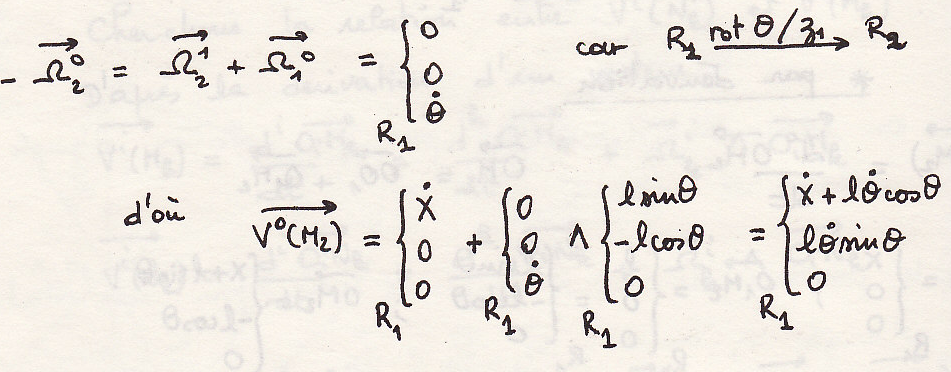 - Ω₂⁰ = Ω₂¹ + Ω₁⁰ = R₁ { 0 0 θ̇ car R₁ rot θ/z₁ → R₂
d'où V⁰(M₂) = R₁ { Ẋ 0 0 + R₁ { 0 0 θ̇ ∧ R₁ { lsinθ -lcosθ 0 = R₁ { Ẋ + lθ̇cosθ lθ̇sinθ 0